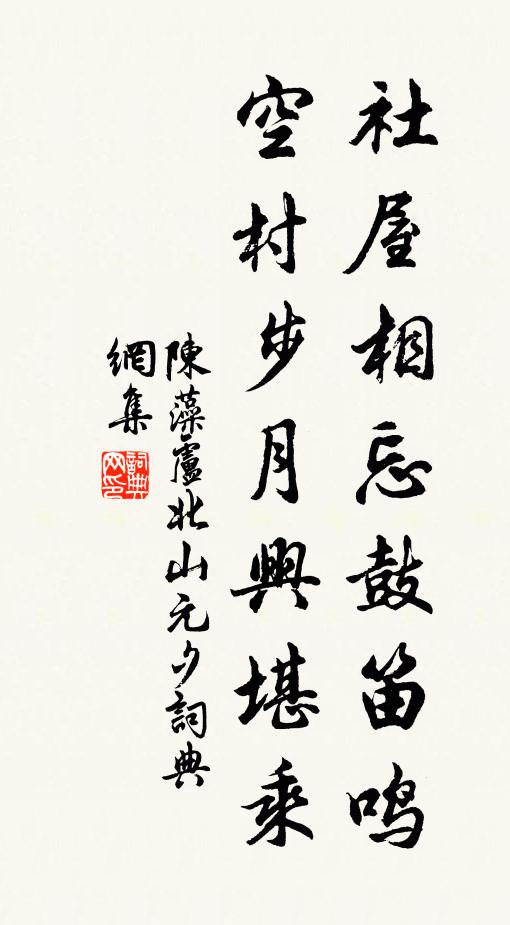 社屋相忘鼓笛鸣
空村步月興堪乘
陳藻廬北山元夕詞典
網集
詞典網印